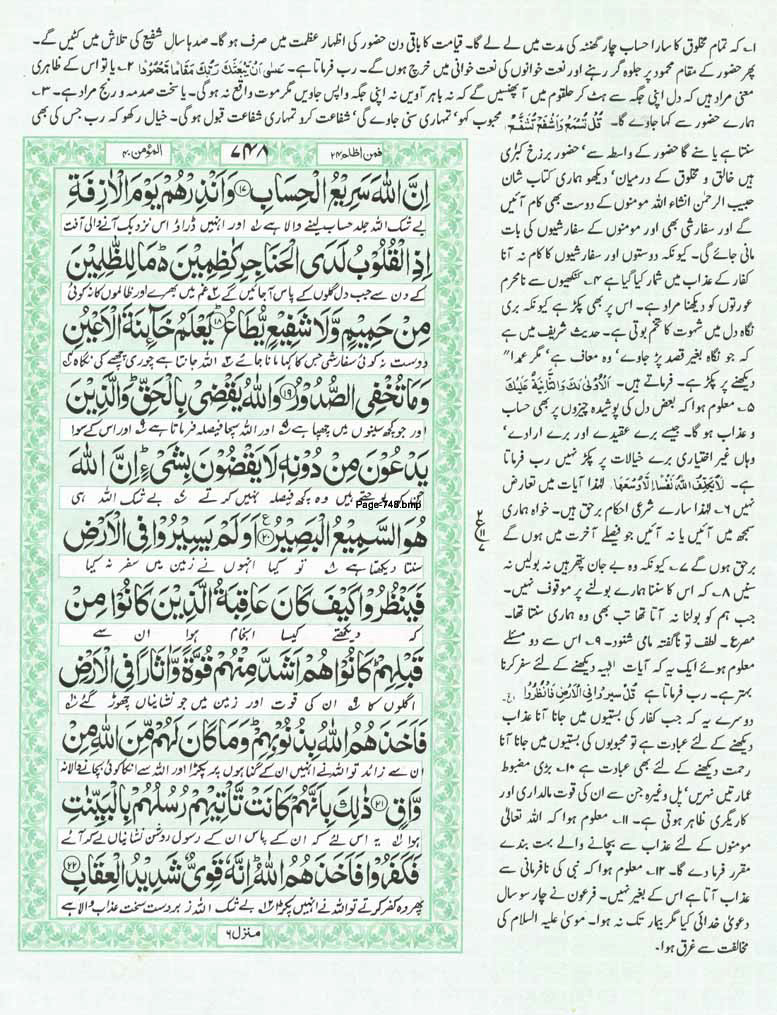 ۱؎ کہ تمام مخلوق کا سارا حساب چار گھنٹہ کی مدت میں لے لے گا۔ قیامت کا باقی دن حضور کی اظہار عظمت میں صرف ہو گا۔ صدہا سال شفیع کی تلاش میں کٹیں گے۔
پھر حضور کے مقام محمود پر جلوہ گر رہنے اور نعت خوانوں کی نعت خوانی میں خرچ ہوں گے۔ رب فرماتا ہے۔ عَسٰی اَنْ یَّبْعَثَکَ رَبُّکَ مَقَامًا مَّحْمُوْدًا ۲؎ یا تو اس کے ظاہری
معنی مراد ہیں کہ دل اپنی جگہ سے ہٹ کر حلقوم میں آ پھنسیں گے کہ نہ باہر آویں نہ اپنی جگہ واپس جاویں مگر موت واقع نہ ہو گی۔ یا سخت صدمہ و رنج مراد ہے۔ ۳؎
ہمارے حضور سے کہا جاوے گا۔ قُلْ تُسْمَعْ وَاشْفَعْ تُشَفَّعْ محبوب کہو' تمہاری سنی جاوے گی' شفاعت کرو تمہاری شفاعت قبول ہو گی۔ خیال رکھو کہ رب جس کی بھی
المؤمن ۴۰
۷۴۸
فمن اظلم ۲۴
اِنَّ اللّٰهَ سَرِیْعُ الْحِسَابِ ۝۱۷ وَاَنْذِرْهُمْ یَوْمَ الْاٰزِفَةِ
بے شک اللہ جلد حساب لینے والا ہے ۱؎ اور انہیں ڈراؤ اس نزدیک آنے والی آفت
اِذِ الْقُلُوْبُ لَدَی الْحَنَاجِرِ كٰظِمِیْنَ ؕ۬ مَا لِلظّٰلِمِیْنَ
کے دن سے جب دل گلوں کے پاس آجائیں گے ۲؎ غم میں بھرے اور ظالموں کا نہ کوئی
مِنْ حَمِیْمٍ وَّلَا شَفِیْعٍ یُّطَاعُ ؕ۝۱۸ یَعْلَمُ خَآئِنَةَ الْاَعْیُنِ
دوست نہ کوئی سفارشی جس کا کہا مانا جائے ۳؎ اللہ جانتا ہے چوری چھپے کی نگاہ ۴؎
وَمَا تُخْفِی الصُّدُوْرُ ۝۱۹ وَاللّٰهُ یَقْضِیْ بِالْحَقِّ ؕ وَالَّذِیْنَ
اور جو کچھ سینوں میں چھپا ہے ۵؎ اور اللہ سچا فیصلہ فرماتا ہے ۶؎ اور اس کے سوا
یَدْعُوْنَ مِنْ دُوْنِهٖ لَا یَقْضُوْنَ بِشَیْءٍ ؕ اِنَّ اللّٰهَ
جن کو پوجتے ہیں وہ کچھ فیصلہ نہیں کرتے ۷؎ بے شک اللہ ہی
Page-748.bmp
هُوَ السَّمِیْعُ الْبَصِیْرُ ۝۲۰ اَوَلَمْ یَسِیْرُوْا فِی الْاَرْضِ
سنتا دیکھتا ہے ۸؎ تو کیا انہوں نے زمین میں سفر نہ کیا
فَیَنْظُرُوْا كَیْفَ كَانَ عَاقِبَةُ الَّذِیْنَ كَانُوْا مِنْ
کہ دیکھتے کیسا انجام ہوا ان سے
قَبْلِهِمْ ؕ كَانُوْا هُمْ اَشَدَّ مِنْهُمْ قُوَّةً وَّاٰثَارًا فِی الْاَرْضِ
اگلوں کا ۹؎ ان کی قوت اور زمین میں جو نشانیاں چھوڑ گئے ۱۰؎
فَاَخَذَهُمُ اللّٰهُ بِذُنُوْبِهِمْ ؕ وَمَا كَانَ لَهُمْ مِّنَ اللّٰهِ مِنْ
ان سے زائد تو اللہ نے انہیں ان کے گناہوں پر پکڑا اور اللہ سے انکا کوئی بچانے والا نہ
وَّاقٍ ۝۲۱ ذٰلِكَ بِاَنَّهُمْ كَانَتْ تَّاْتِیْهِمْ رُسُلُهُمْ بِالْبَیِّنٰتِ
ہوا ۱۱؎ یہ اس لئے کہ ان کے پاس ان کے رسول روشن نشانیاں لے کر آئے
فَكَفَرُوْا فَاَخَذَهُمُ اللّٰهُ ؕ اِنَّهٗ قَوِیٌّ شَدِیْدُ الْعِقَابِ ۝۲۲
پھر وہ کفر کرتے تو اللہ نے انہیں پکڑا ۱۲؎ بے شک اللہ زبردست سخت عذاب والا ہے
منزل ۶
سنتا ہے یا سنے گا حضور کے واسطہ سے' حضور برزخ کبریٰ
ہیں خالق و مخلوق کے درمیان' دیکھو ہماری کتاب شان
حبیب الرحمٰن انشاء اللہ مومنوں کے دوست بھی کام آئیں
گے اور سفارشی بھی اور مومنوں کے سفارشیوں کی بات
مانی جائے گی۔ کیونکہ دوستوں اور سفارشیوں کا کام نہ آنا
کفار کے عذاب میں شمار کیا گیا ہے ۴؎ کنکھیوں سے نامحرم
عورتوں کو دیکھنا مراد ہے۔ اس پر بھی پکڑ ہے کیونکہ بری
نگاہ دل میں شہوت کا تخم بوتی ہے۔ حدیث شریف میں ہے
کہ جو نگاہ بغیر قصد پڑ جاوے' وہ معاف ہے' مگر عمداً"
دیکھنے پر پکڑ ہے۔ فرماتے ہیں۔ اَلْاُوْلٰی لَکَ وَالثَّانِیَةُ عَلَیْکَ
۵؎ معلوم ہوا کہ بعض دل کی پوشیدہ چیزوں پر بھی حساب
و عذاب ہو گا۔ جیسے برے عقیدے اور برے ارادے'
وہاں غیر اختیاری برے خیالات پر پکڑ نہیں رب فرماتا
ہے۔ لَا یُکَلِّفُ اللّٰہُ نَفْسًا اِلَّا وُسْعَھَا۔ لہٰذا آیات میں تعارض
نہیں ۶؎ لہٰذا سارے شرعی احکام برحق ہیں۔ خواہ ہماری
سمجھ میں آئیں یا نہ آئیں جو فیصلے آخرت میں ہوں گے
برحق ہوں گے ۷؎ کیونکہ وہ بے جان پتھر ہیں نہ بولیں نہ
سنیں ۸؎ کہ اس کا سننا ہمارے بولنے پر موقوف نہیں۔
جب ہم کو بولنا نہ آتا تھا تب بھی وہ ہماری سنتا تھا۔
مصرع۔ لطف تو ناگفتہ مامی شنود۔ ۹؎ اس سے دو مسئلے
معلوم ہوئے ایک یہ کہ آیات الٰہیہ دیکھنے کے لئے سفر کرنا
بہتر ہے۔ رب فرماتا ہے قُلْ سِیْرُوْا فِی الْاَرْضِ فَانْظُرُوْا الخ۔
دوسرے یہ کہ جب کفار کی بستیوں میں جانا آنا عذاب
دیکھنے کے لئے عبادت ہے تو محبوبوں کی بستیوں میں جانا آنا
رحمت دیکھنے کے لئے بھی عبادت ہے ۱۰؎ بڑی مضبوط
عمارتیں نہریں' پل وغیرہ جن سے ان کی قوت مالداری اور
کاریگری ظاہر ہوتی ہے۔ ۱۱؎ معلوم ہوا کہ اللہ تعالیٰ
مومنوں کے لئے عذاب سے بچانے والے بہت بندے
مقرر فرما دے گا۔ ۱۲؎ معلوم ہوا کہ نبی کی نافرمانی سے
عذاب آتا ہے اس کے بغیر نہیں۔ فرعون نے چار سو سال
دعویٰ خدائی کیا مگر بیمار تک نہ ہوا۔ موسیٰ علیہ السلام کی
مخالفت سے غرق ہوا۔